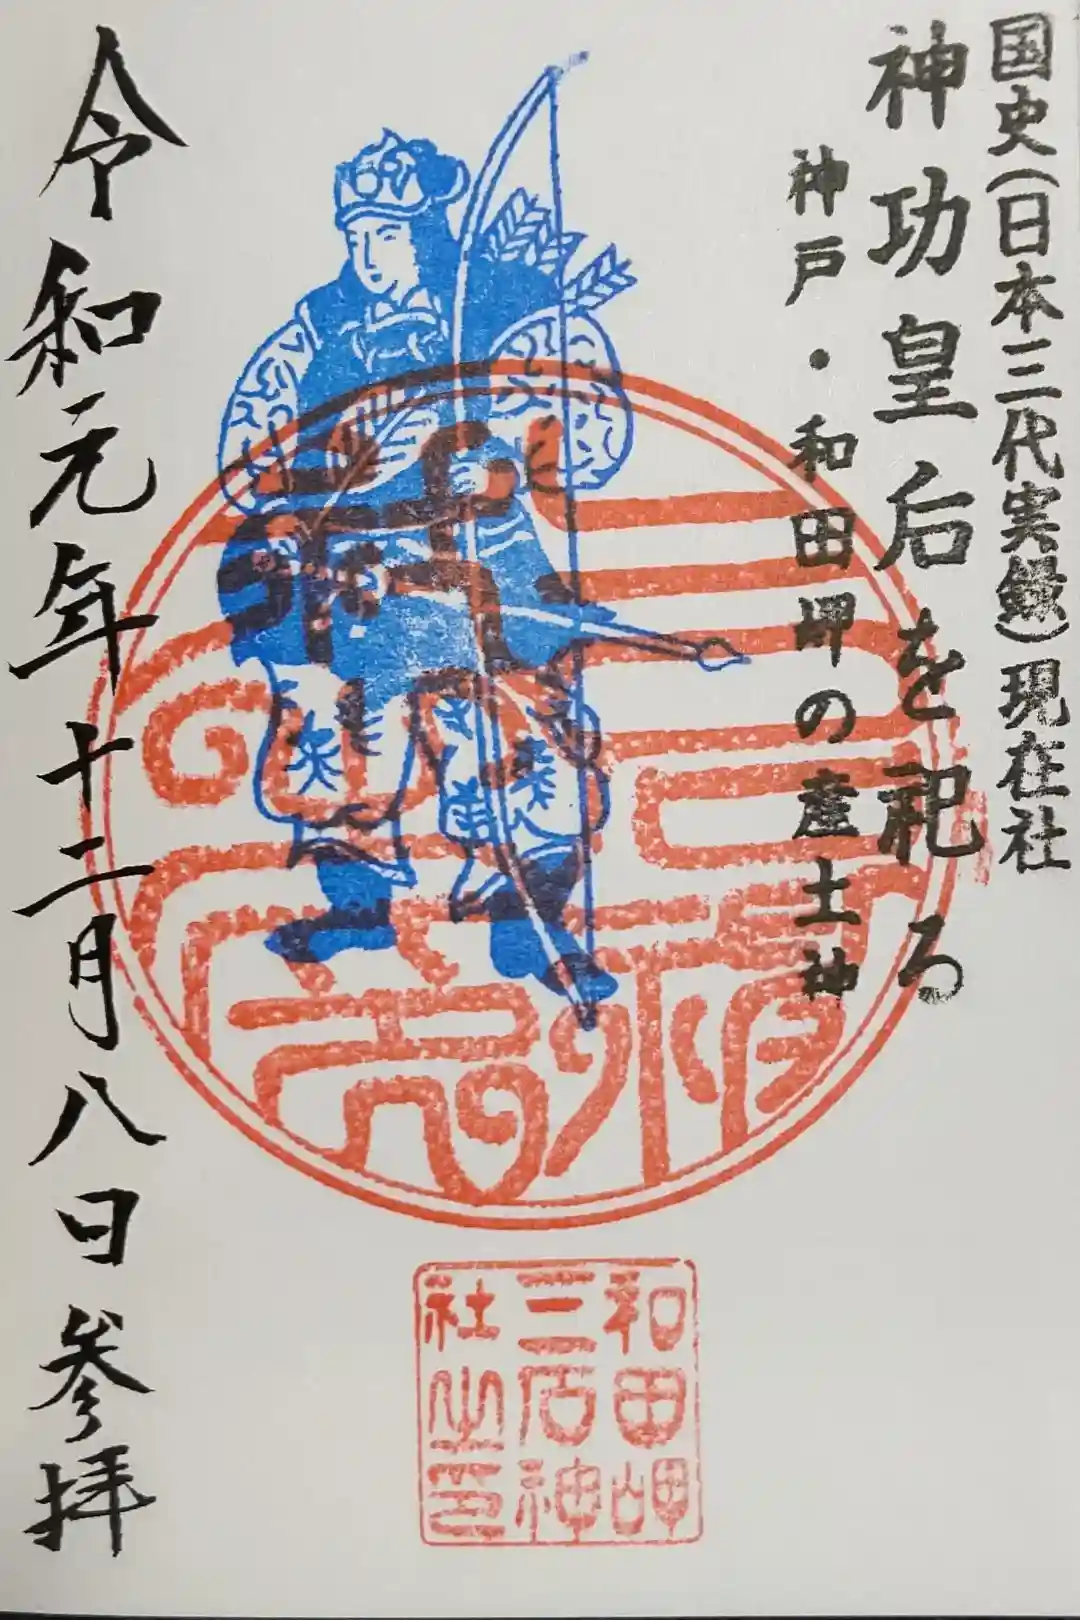 国史(日本三代実録)現在社
神功皇后を祀る
神戸・和田岬の産土神
令和元年十二月八日参拝
和田岬
三石神
社之印